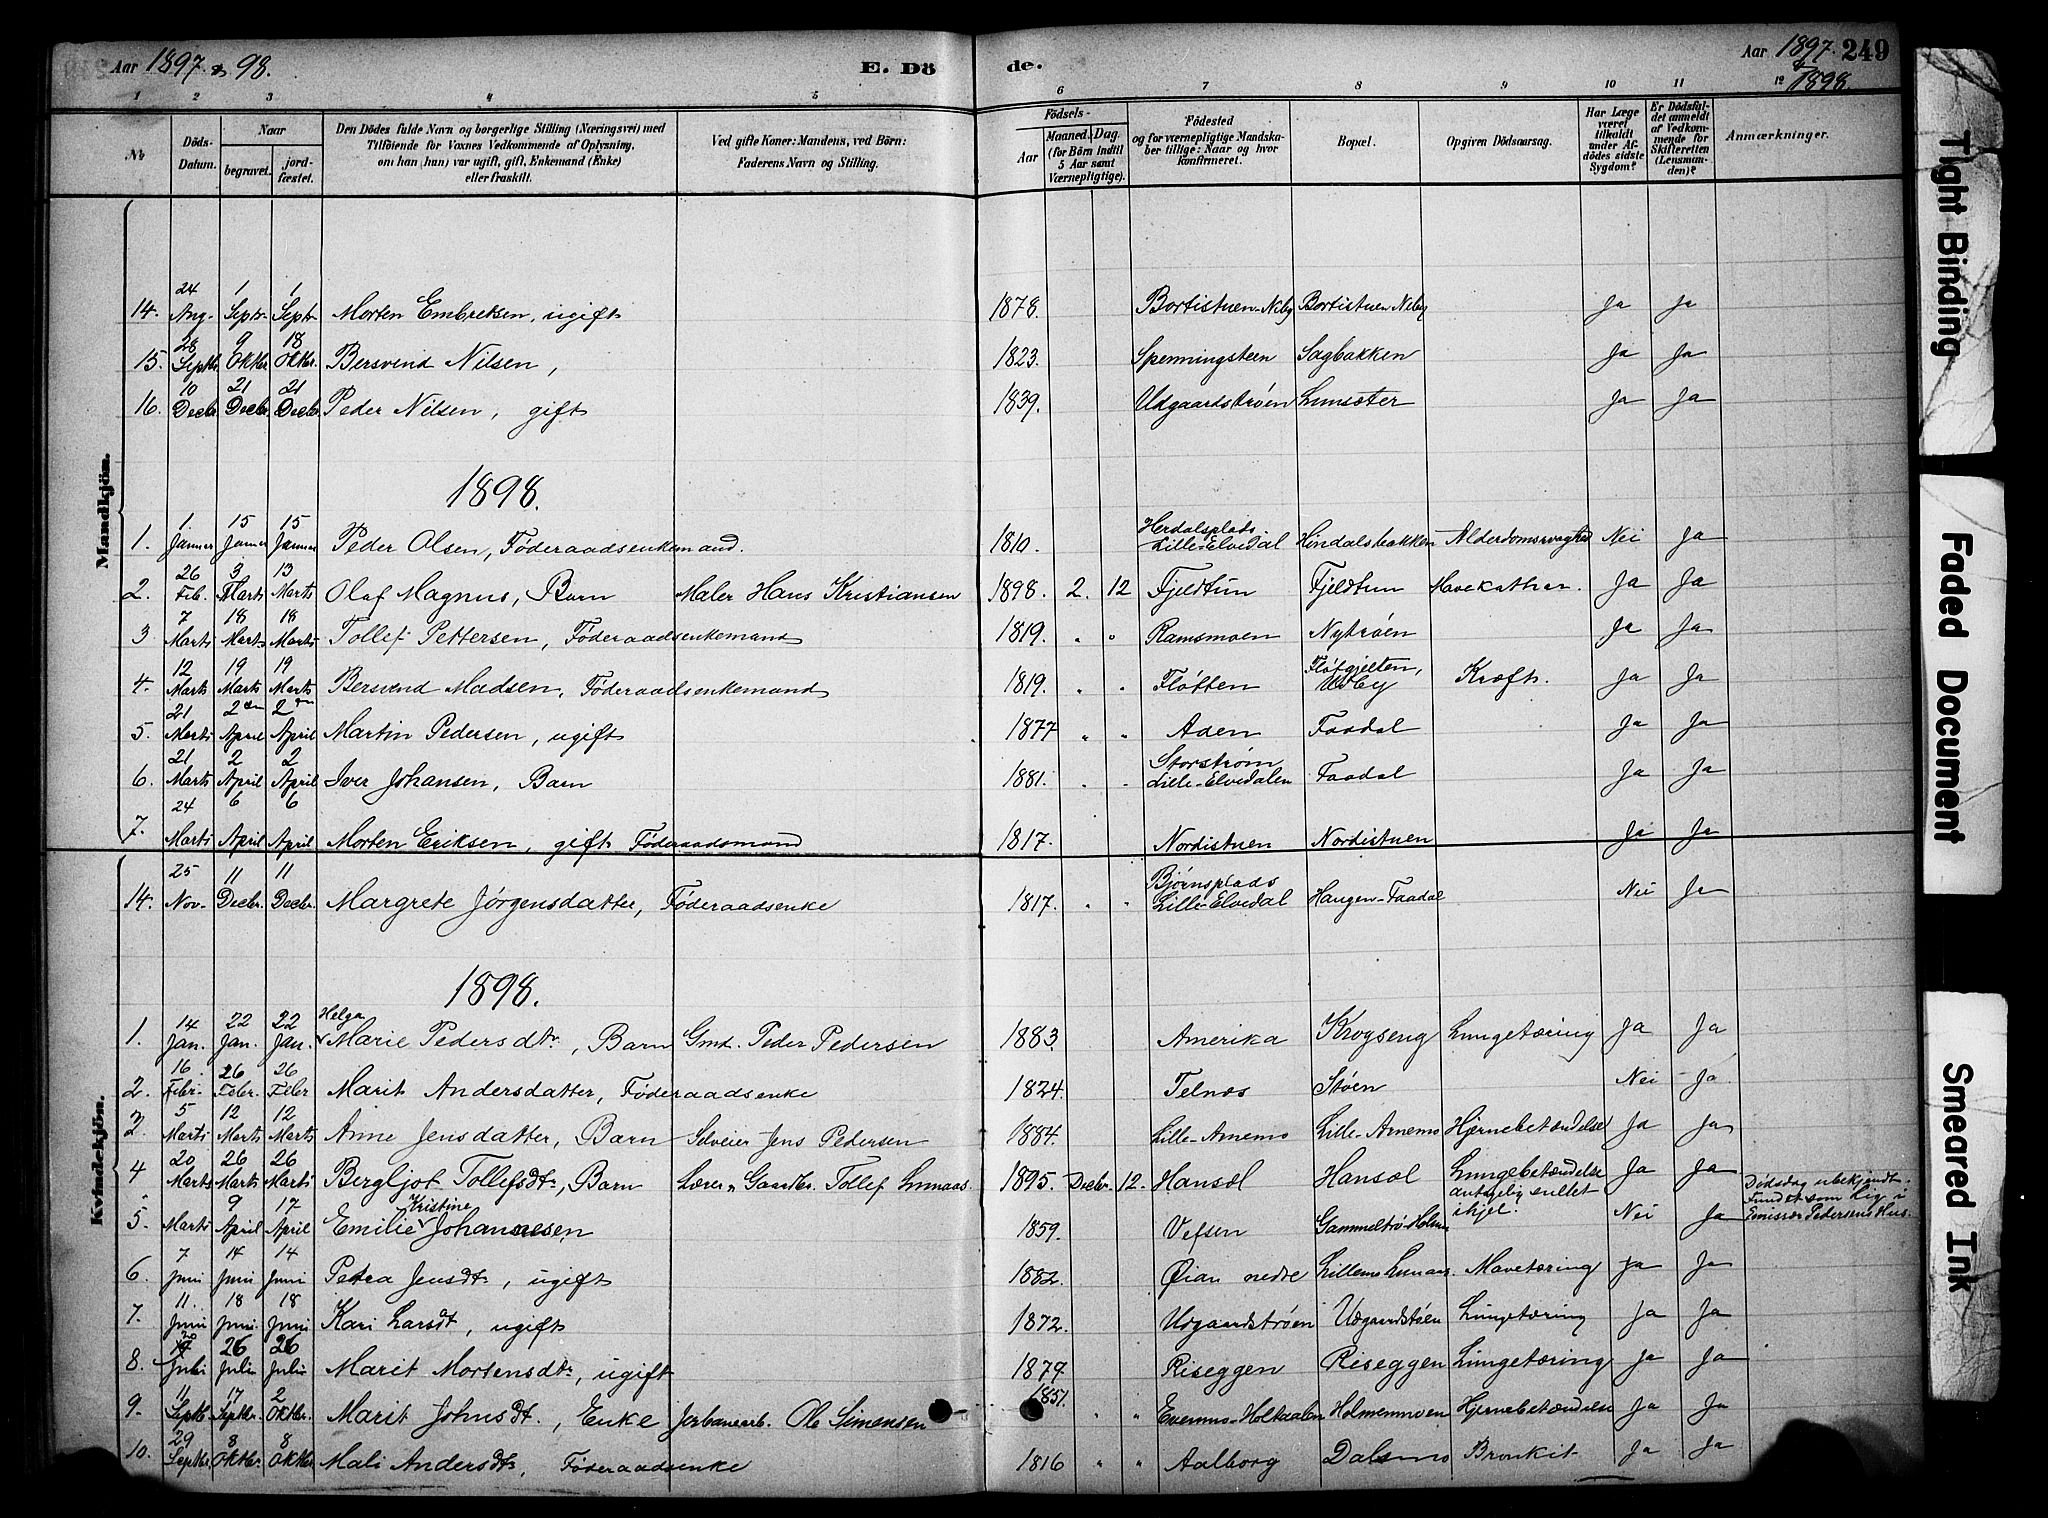 Aar 1897 & 98.
E. Dö
de.
Aar 1897. & 1898.
249
1 2 3 4 5 6 7 8 9 10 11 12
No
Döds-Datum.
Naar
begravet.
jordfæstet.
Den Dödes fulde Navn og borgerlige Stilling (Næringsvei) med
Tilföiende for Voxnes Vedkommende af Oplysning,
om han (hun) var ugift, gift, Enkemand (Enke)
eller fraskilt.
Ved gifte Koner: Mandens, ved Börn:
Faderens Navn og Stilling.
Födsels-
Aar
Maaned. Dag.
(for Börn indtil
5 Aar samt
Værnepligtige).
Födested
og for værnepligtige Mandska-
ber tillige: Naar og hvor
konfirmeret.
Bopæl.
Opgiven Dödsaarsag.
Har Læge
været
tilkaldt
under Af-
dödes sidste
Sygdom?
Er Dödsfal-
det anmeldt
af Vedkom-
mende for
Skifteretten
(Lensman-
den)?
Anmærkninger.
Mandkjön.
14. 24 Aug. 1 Septr. 1 Septr. Morten Embretsen, ugift 1878. Bortistuen-Neby Bortistuen Neby Ja Ja
15. 28 Septbr. 9 Oktbr. 18 Oktbr. Bersvend Nilsen, 1823. Spenningsteen Sagbakken Ja Ja
16. 10 Decbr. 21 Decbr. 21 Decbr. Peder Nilsen, gift 1839. Udgaardstrøen Lunsæter Ja Ja
1898.
1. 1. Januar 15 Januar 15 Januar Peder Olsen, Føderaadsenkemand. 1810. Herdalsplads. Lille-Elvedal Hindalsbakken Alderdomssvaghed Nei Ja
2. 26 Feb. 3 Marts 13 Marts Olaf Magnus, Barn Maler Hans Kristiansen 1898. 2. 12 Fjeldtun Fjeldtun Mavekathar. Ja Ja
3 7 Marts 18 Marts 18 Marts Tollef Pettersen, Føderaadsenkemand 1819. " " Ramsmoen Nytrøen Ja Ja
4. 12 Marts 19 Marts 19 Marts Bersvend Madsen, Føderaadsenkemand 1819. " " Fløtten Fløtgjelten, Udby Kræft. Ja Ja
5. 21 Marts 2den April 2den April Martin Pedersen, ugift 1877 " " Aden Faadal Ja Ja
6. 21 Marts 2 April 2 April Iver Johansen, Barn 1881. " " Storstrøm Lille-Elvedalen Faadal Ja Ja
7. 24 Marts 6 April 6 April Morten Eriksen, gift Føderaadsmand 1817. Nordistuen Nordistuen Ja Ja
Kvindekjön.
14. 25 Nov. 11 Decbr. 11 Decbr. Margrete Jørgensdatter, Føderaadsenke 1817. " " Bjørnsplads Lille-Elvedal Haugen-Faadal Nei Ja
1898.
1. 14 Jan. 22 Jan. 22 Jan. Helga Marie Pedersdtr, Barn Gmd. Peder Pedersen 1883. Amerika Krogseng Lungetæring Ja Ja
2. 16 Febr. 26 Febr. 26 Febr Marit Andersdatter, Føderaadsenke 1824. Telnæs Støen Nei - Ja
2. 5 Marts 12 Marts 12 Marts Anne Jensdatter, Barn Selveier Jens Pedersen 1884. Lille-Arnemo Lille-Arnemo Hjernebetændelse Ja Ja
4 20 Marts 26 Marts 26 Marts Bergljot Tollefsdtr, Barn Lærer & Gaardbr. Tollef Lunaas. 1895. Decbr. 12. Hansæl Hansæl Lungebetændelse Ja Ja
5. Marts 9 April 17 April Emilie Kristine Johannesen, 1859. Vefsen Gammeltrø-Holmen antagelig sultet ihjel. Nei Ja Dødsdag ubekjendt. Fundet som Lig i Emissær Pedersens Hus.
6. 7 Juni 14 Juni 14 Juni Petra Jensdtr, ugift 1882. Øian nedre Lillemo Lunaas. Mavetæring Ja Ja
7. 11. Juni 18 Juni 18 Juni Kari Larsdt, ugift 1872. Udgaardstrøen Udgaardstøen Lungetæring Ja Ja
8. 20 Juli 26 Juli 26 Juli Marit Mortensdtr, ugift 1879. Riseggen Riseggen Lungetæring Ja Ja
9. 11 Septb. 17 Septbr. 2 Oktbr. Marit Johnsdt., Enke Jerbanearb. Ole Simensen 1851. " " Evenmo-Holtaalen Holmenmoen Hjernebetændelse Ja Ja
10. 29 Septbr 8 Oktbr 8 Oktbr Mali Andersdtr, Føderaadsenke 1816 " " Aalborg Dalsmo Bronkit Ja Ja
Tight Binding
Faded Document
Smeared Ink